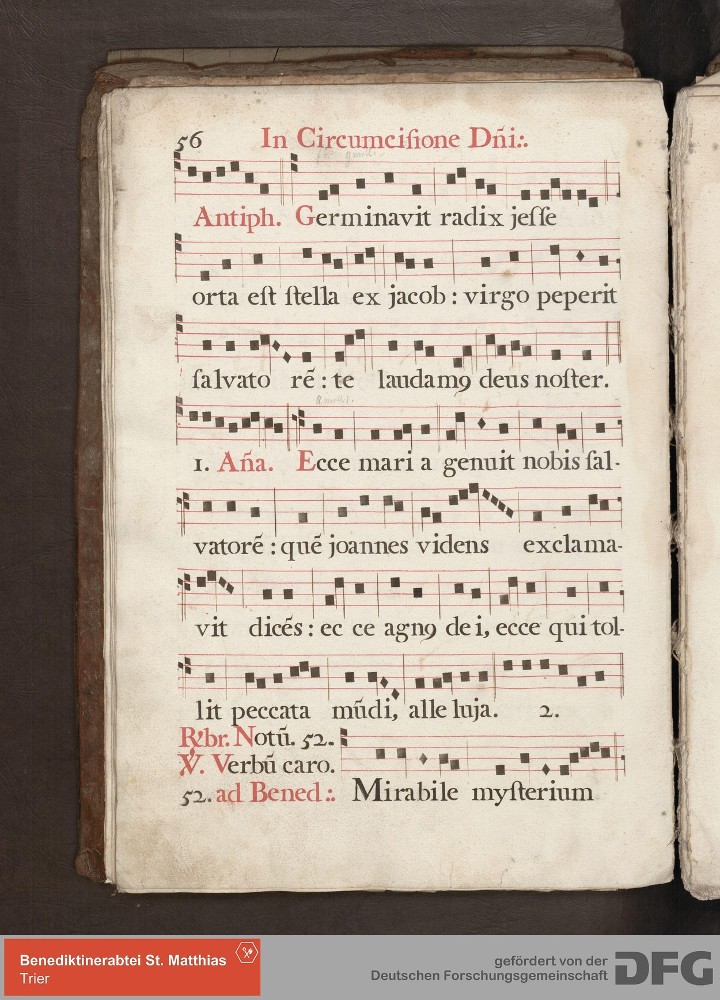 56 In Circumciſione Dñi:.
Antiph. Germinavit radix jeſſe
orta eſt ſtella ex jacob : virgo peperit
ſalvato rē : te laudamꝯ deus noſter.
1. Aña. Ecce mari a genuit nobis ſal-
vatorē : quē joannes videns exclama-
vit dicēs : ec ce agnꝯ de i, ecce qui tol-
lit peccata mūdi, alle luja. 2.
R̷br. Notū. 52.
V̷. Verbū caro.
52. ad Bened:. Mirabile myſterium
Benediktinerabtei St. Matthias
Trier
gefördert von der
Deutschen Forschungsgemeinschaft DFG